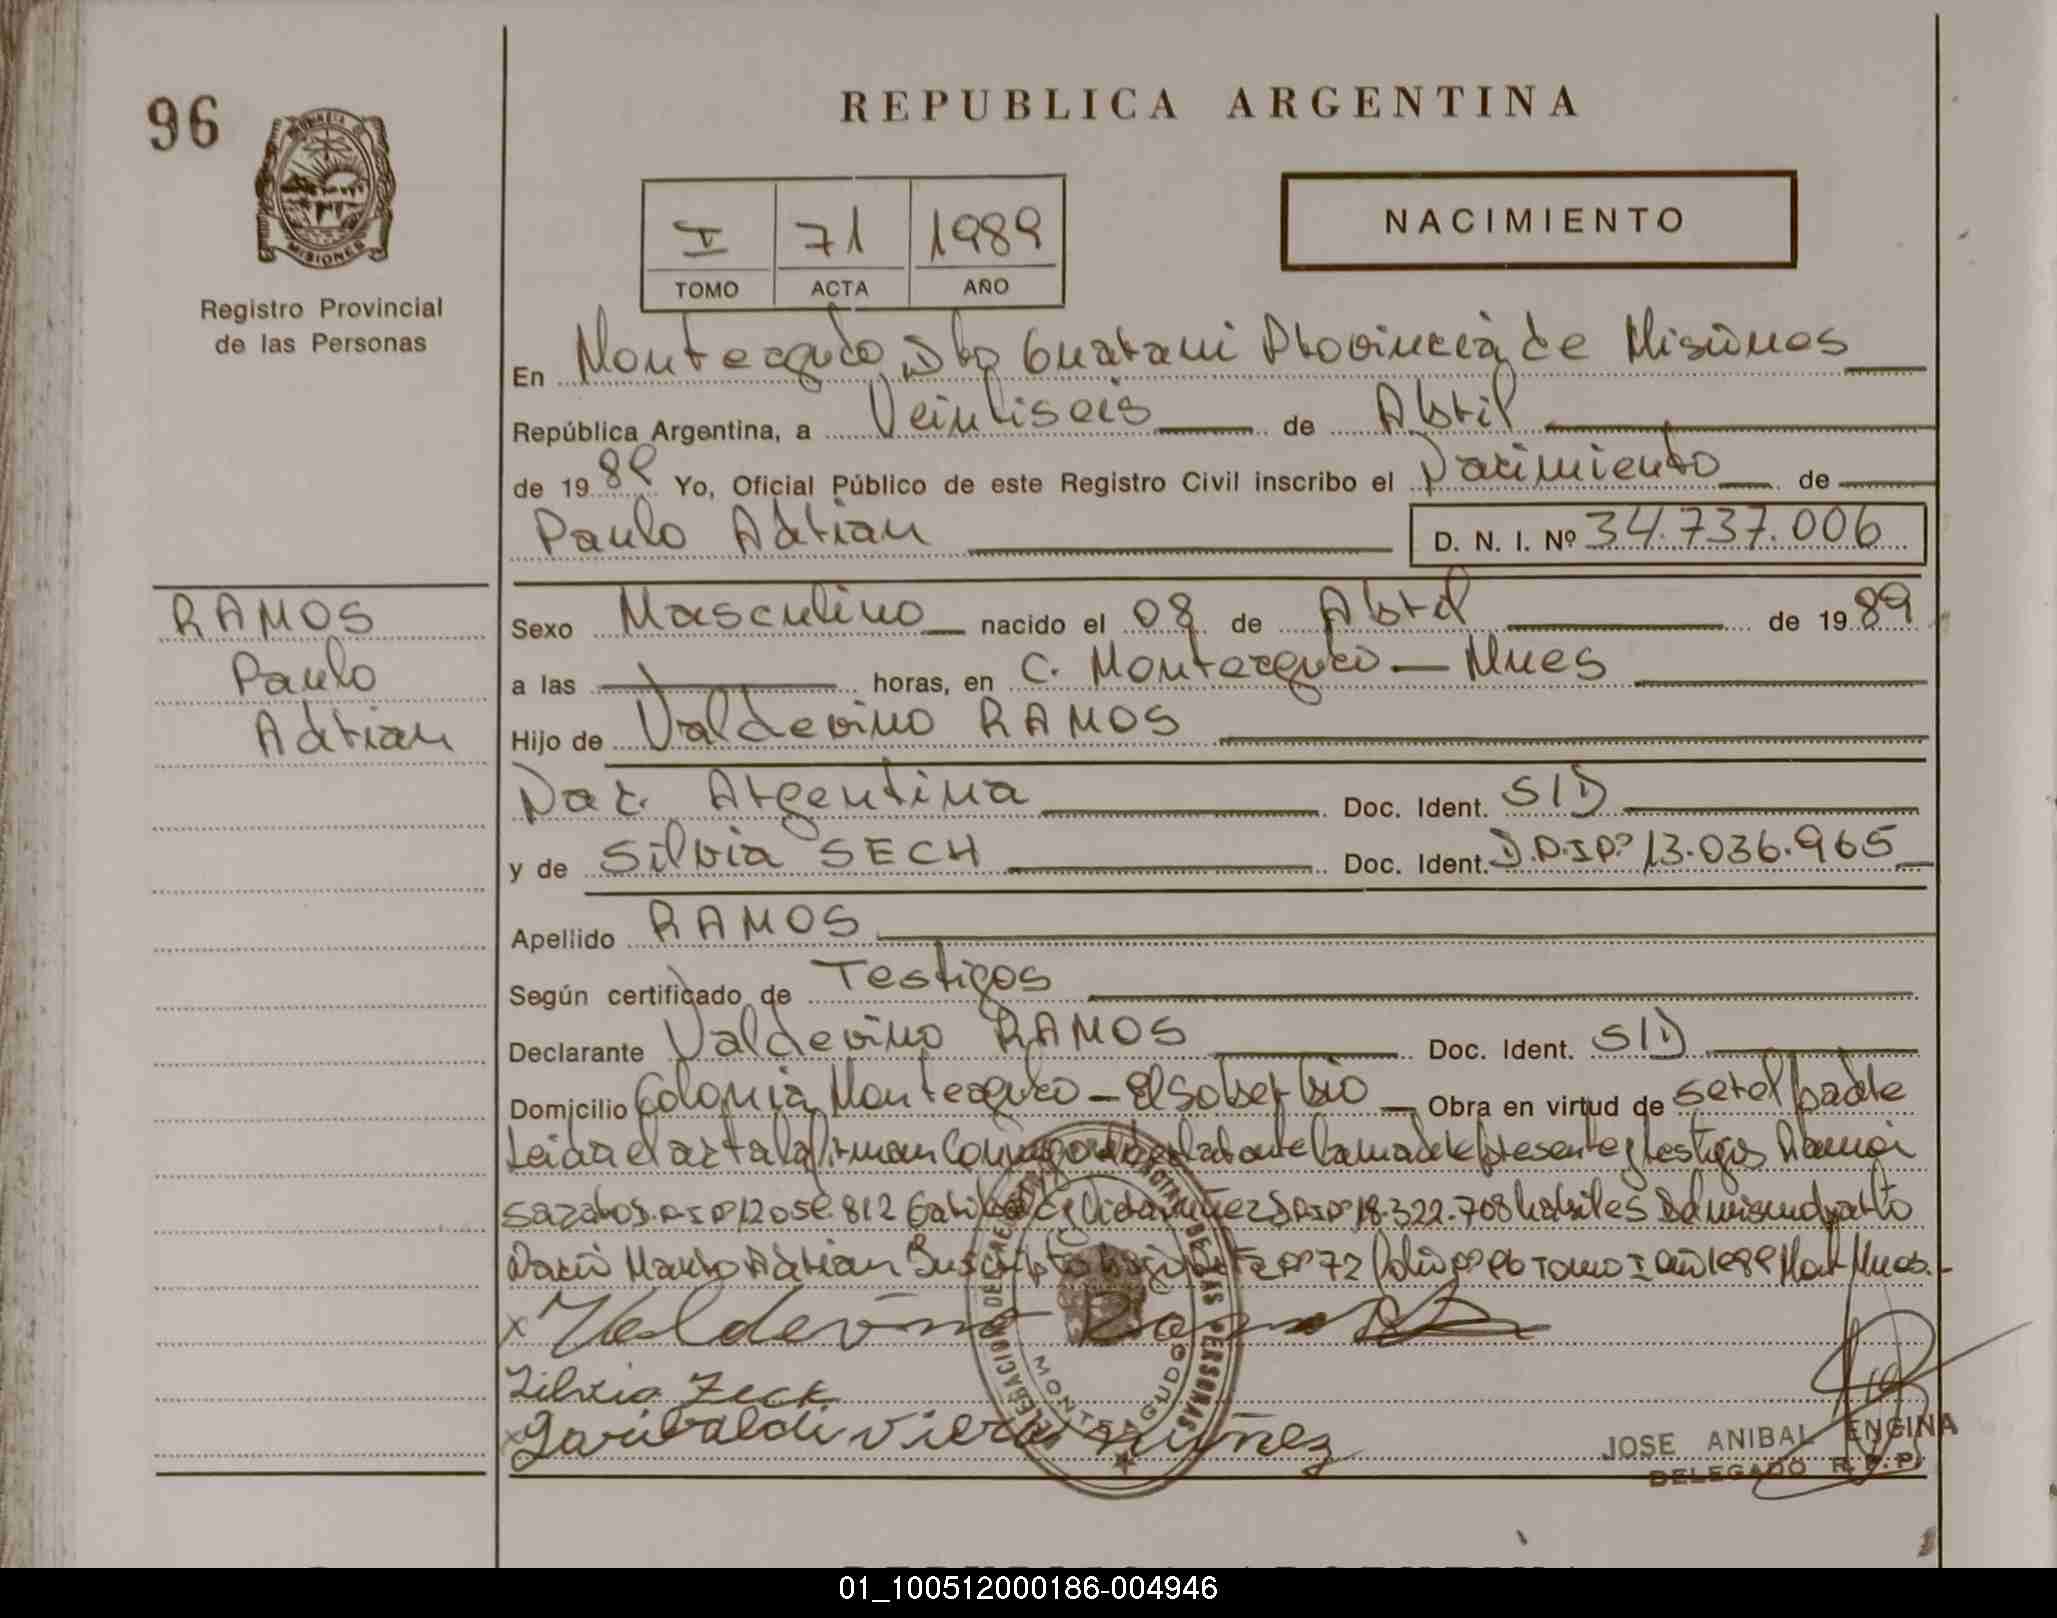 96
REPUBLICA ARGENTINA
MISIONES
Registro Provincial
de las Personas
NACIMIENTO
I 71 1989
TOMO ACTA AÑO
En Monteagudo, Dto Guarani Provincia de Misiones
República Argentina, a Veintiseis de Abril
de 1989 Yo, Oficial Público de este Registro Civil inscribo el Nacimiento de
Paulo Adrian D. N. I. Nº 34.737.006
RAMOS
Paulo
Adrian
Sexo Masculino nacido el 08 de Abril de 1989
a las horas, en C. Monteagudo - Mnes
Hijo de Valdevino RAMOS
Nac. Argentina Doc. Ident. S/D
y de Silvia SECH Doc. Ident. D.N.I Nº 13.036.965
Apellido RAMOS
Según certificado de Testigos
Declarante Valdevino RAMOS Doc. Ident. S/D
Domicilio Colonia Monteagudo - El Soberbio Obra en virtud de ser el padre
Leida el acta la firman conmigo el declarante la madre presente y testigos Ramon
D.N.I Nº 12.058.812 D.N.I Nº 18.322.708 habiles Del mismo parto
Nació Marco Adrian Inscripto bajo Acta Nº 72 Folio Nº 96 Tomo I año 1989 Mont. Mnes.
x Valdevino Ramos
Silvia Zeck
x Garibaldi Viera nuñez
DE LAS PERSONAS
MONTEAGUDO
JOSE ANIBAL ENCINA
DELEGADO R.P.P.
01_100512000186-004946